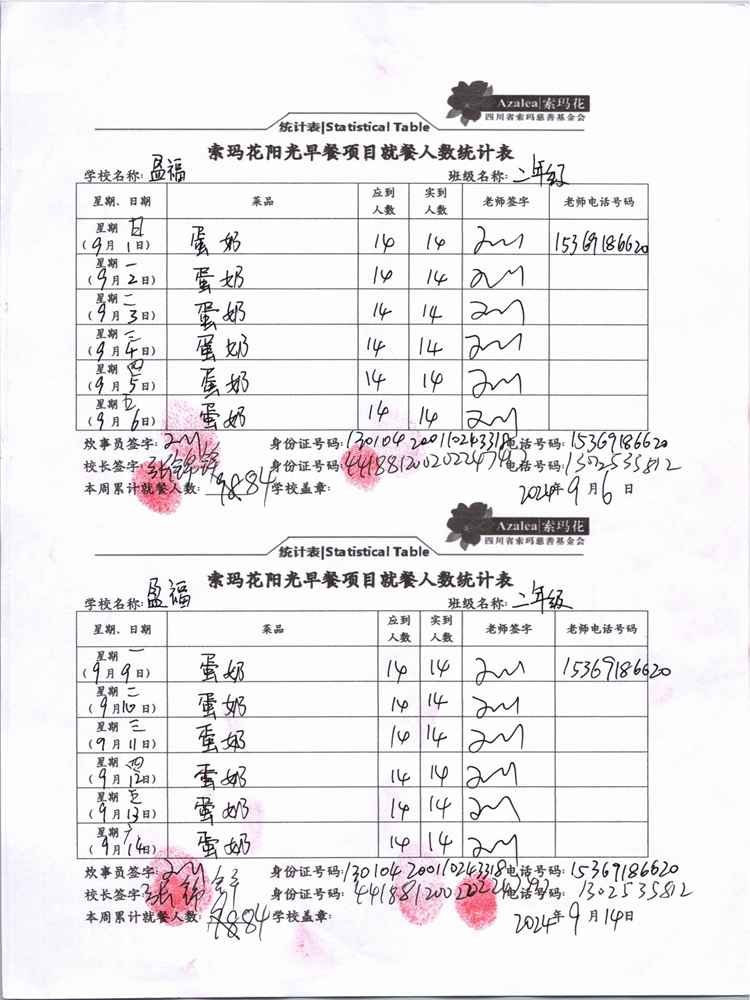 Azalea|索玛花
四川省索玛慈善基金会
统计表|Statistical Table
索玛花阳光早餐项目就餐人数统计表
学校名称:盈福 班级名称:二年级
星期、日期 菜品 应到人数 实到人数 老师签字 老师电话号码
星期日 (9月1日) 蛋奶 14 14 15369186620
星期一 (9月2日) 蛋奶 14 14
星期二 (9月3日) 蛋奶 14 14
星期三 (9月4日) 蛋奶 14 14
星期四 (9月5日) 蛋奶 14 14
星期五 (9月6日) 蛋奶 14 14
炊事员签字: 身份证号码:130104200110243318 电话号码:15369186620
校长签字: 身份证号码: 电话号码:1302535812
本周累计就餐人数: 84 学校盖章: 2024年9月6日
Azalea|索玛花
四川省索玛慈善基金会
统计表|Statistical Table
索玛花阳光早餐项目就餐人数统计表
学校名称:盈福 班级名称:二年级
星期、日期 菜品 应到人数 实到人数 老师签字 老师电话号码
星期一 (9月9日) 蛋奶 14 14 15369186620
星期二 (9月10日) 蛋奶 14 14
星期三 (9月11日) 蛋奶 14 14
星期四 (9月12日) 蛋奶 14 14
星期五 (9月13日) 蛋奶 14 14
星期六 (9月14日) 蛋奶 14 14
炊事员签字: 身份证号码:130104200110243318 电话号码:15369186620
校长签字: 身份证号码: 电话号码:1302535812
本周累计就餐人数: 84 学校盖章: 2024年9月14日